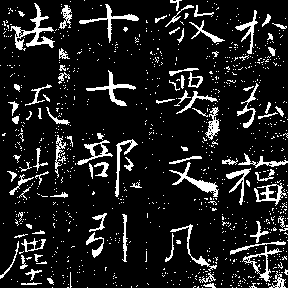 於弘福寺
教要文凡
十七部引
法流洗塵